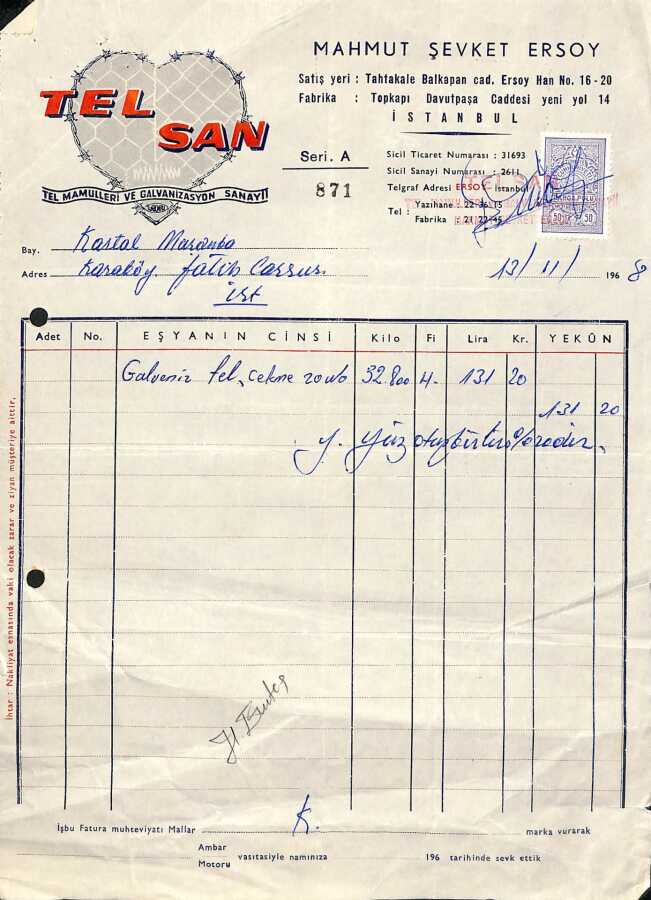 MAHMUT ŞEVKET ERSOY
Satış yeri : Tahtakale Balkapan cad. Ersoy Han No. 16-20
Fabrika : Topkapı Davutpaşa Caddesi yeni yol 14
İSTANBUL
TEL SAN
TEL MAMULLERİ VE GALVANİZASYON SANAYİİ
Seri. A
871
Sicil Ticaret Numarası : 31693
Sicil Sanayi Numarası : 2611
Telgraf Adresi ERSOY İstanbul
Tel : Yazıhane : 22 36 15
Fabrika : 21 22 45
TEL SAN
50 50
Bay. Kastal
Adres Karaköy. fatih
ist
13/11/ 1968
Adet No. EŞYANIN CİNSİ Kilo Fi Lira Kr. YEKÛN
Galveniz tel, cekme 32.800 4. 131 20
131 20
y. yüz
İhtar : Nakliyat esnasında vaki olacak zarar ve ziyan müşteriye aittir.
K.
İşbu Fatura muhteviyatı Mallar marka vurarak
Ambar
Motoru vasıtasiyle namınıza 196 tarihinde sevk ettik